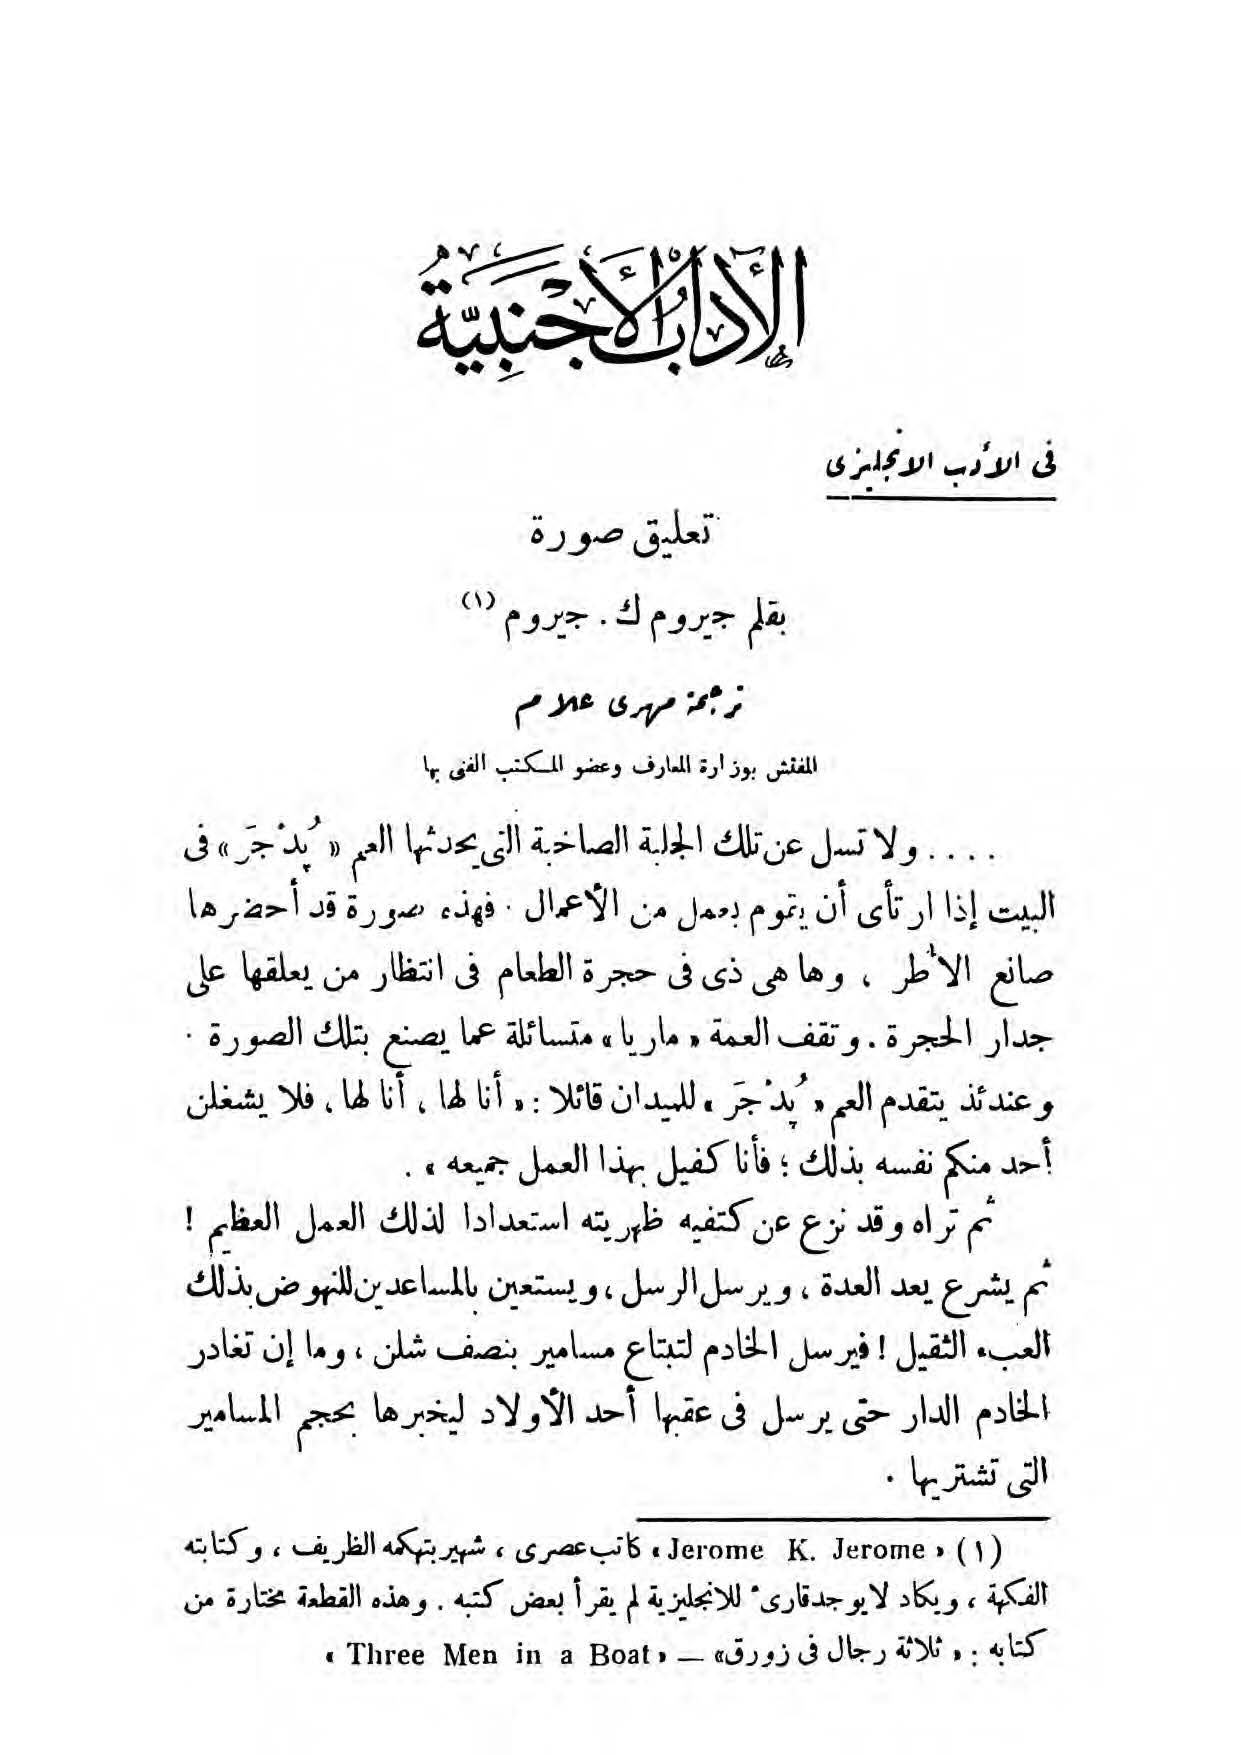 الآدابُ الأَجْنَبِيَّةُ
فى الأدب الانجليزى
تعليق صورة
بقلم جيروم ك . جيروم (١)
ترجمة مهدى علام
المفتش بوزارة المعارف وعضو المكتب الفنى بها
.... ولا تسل عن تلك الجلبة الصاخبة التى يحدثها العم « پُدْجَر » فى
البيت إذا ارتأى أن يقوم بعمل من الأعمال . فهذه صورة قد أحضرها
صانع الأطر ، وها هى ذى فى حجرة الطعام فى انتظار من يعلقها على
جدار الحجرة . وتقف العمة « ماريا » متسائلة عما يصنع بتلك الصورة .
وعندئذ يتقدم العم « پُدْجَر » للميدان قائلا : « أنا لها ، أنا لها ، فلا يشغلن
أحد منكم نفسه بذلك ؛ فأنا كفيل بهذا العمل جميعه » .
ثم تراه وقد نزع عن كتفيه ظهريته استعدادا لذلك العمل العظيم !
ثم يشرع يعد العدة ، ويرسل الرسل ، ويستعين بالمساعدين للنهوض بذلك
العبء الثقيل ! فيرسل الخادم لتبتاع مسامير بنصف شلن ، وما إن تغادر
الخادم الدار حتى يرسل فى عقبها أحد الأولاد ليخبرها بحجم المسامير
التى تشتريها .
(١) « Jerome K. Jerome » كاتب عصرى ، شهير بتهكمه الظريف ، وكتابته
الفكهة ، ويكاد لا يوجد قارئ للانجليزية لم يقرأ بعض كتبه . وهذه القطعة مختارة من
كتابه : « ثلاثة رجال فى زورق» — « Three Men in a Boat »